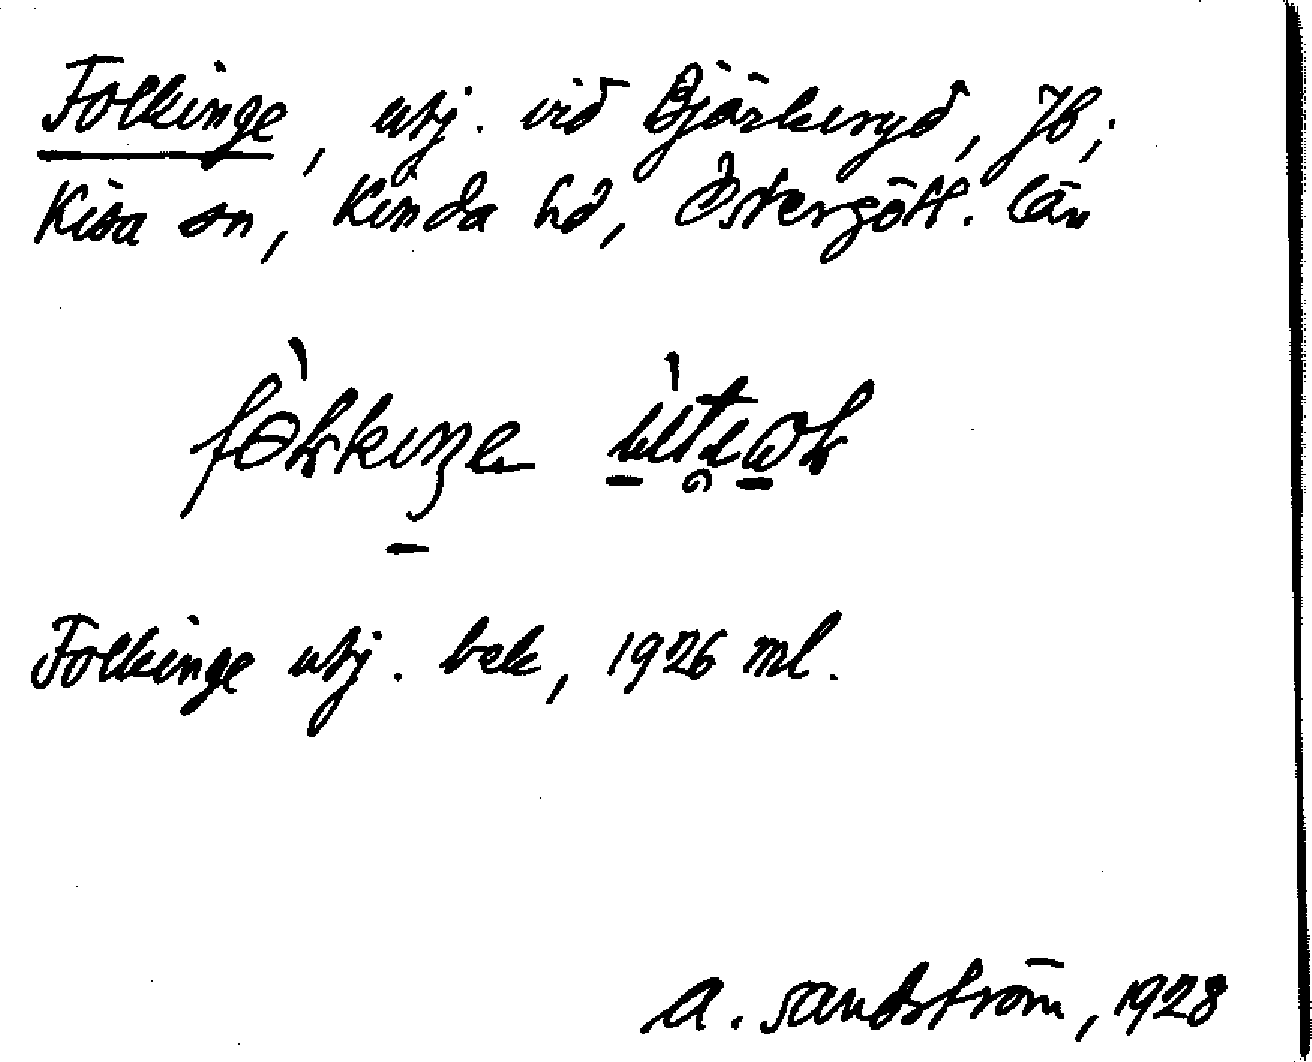 Folkinge, utj. vid Bjärkeryd, Jb;
Kisa sn, Kinda hd, Östergötl. län
Folkinge utj. bek, 1926 ml.
A. Sandström, 1928